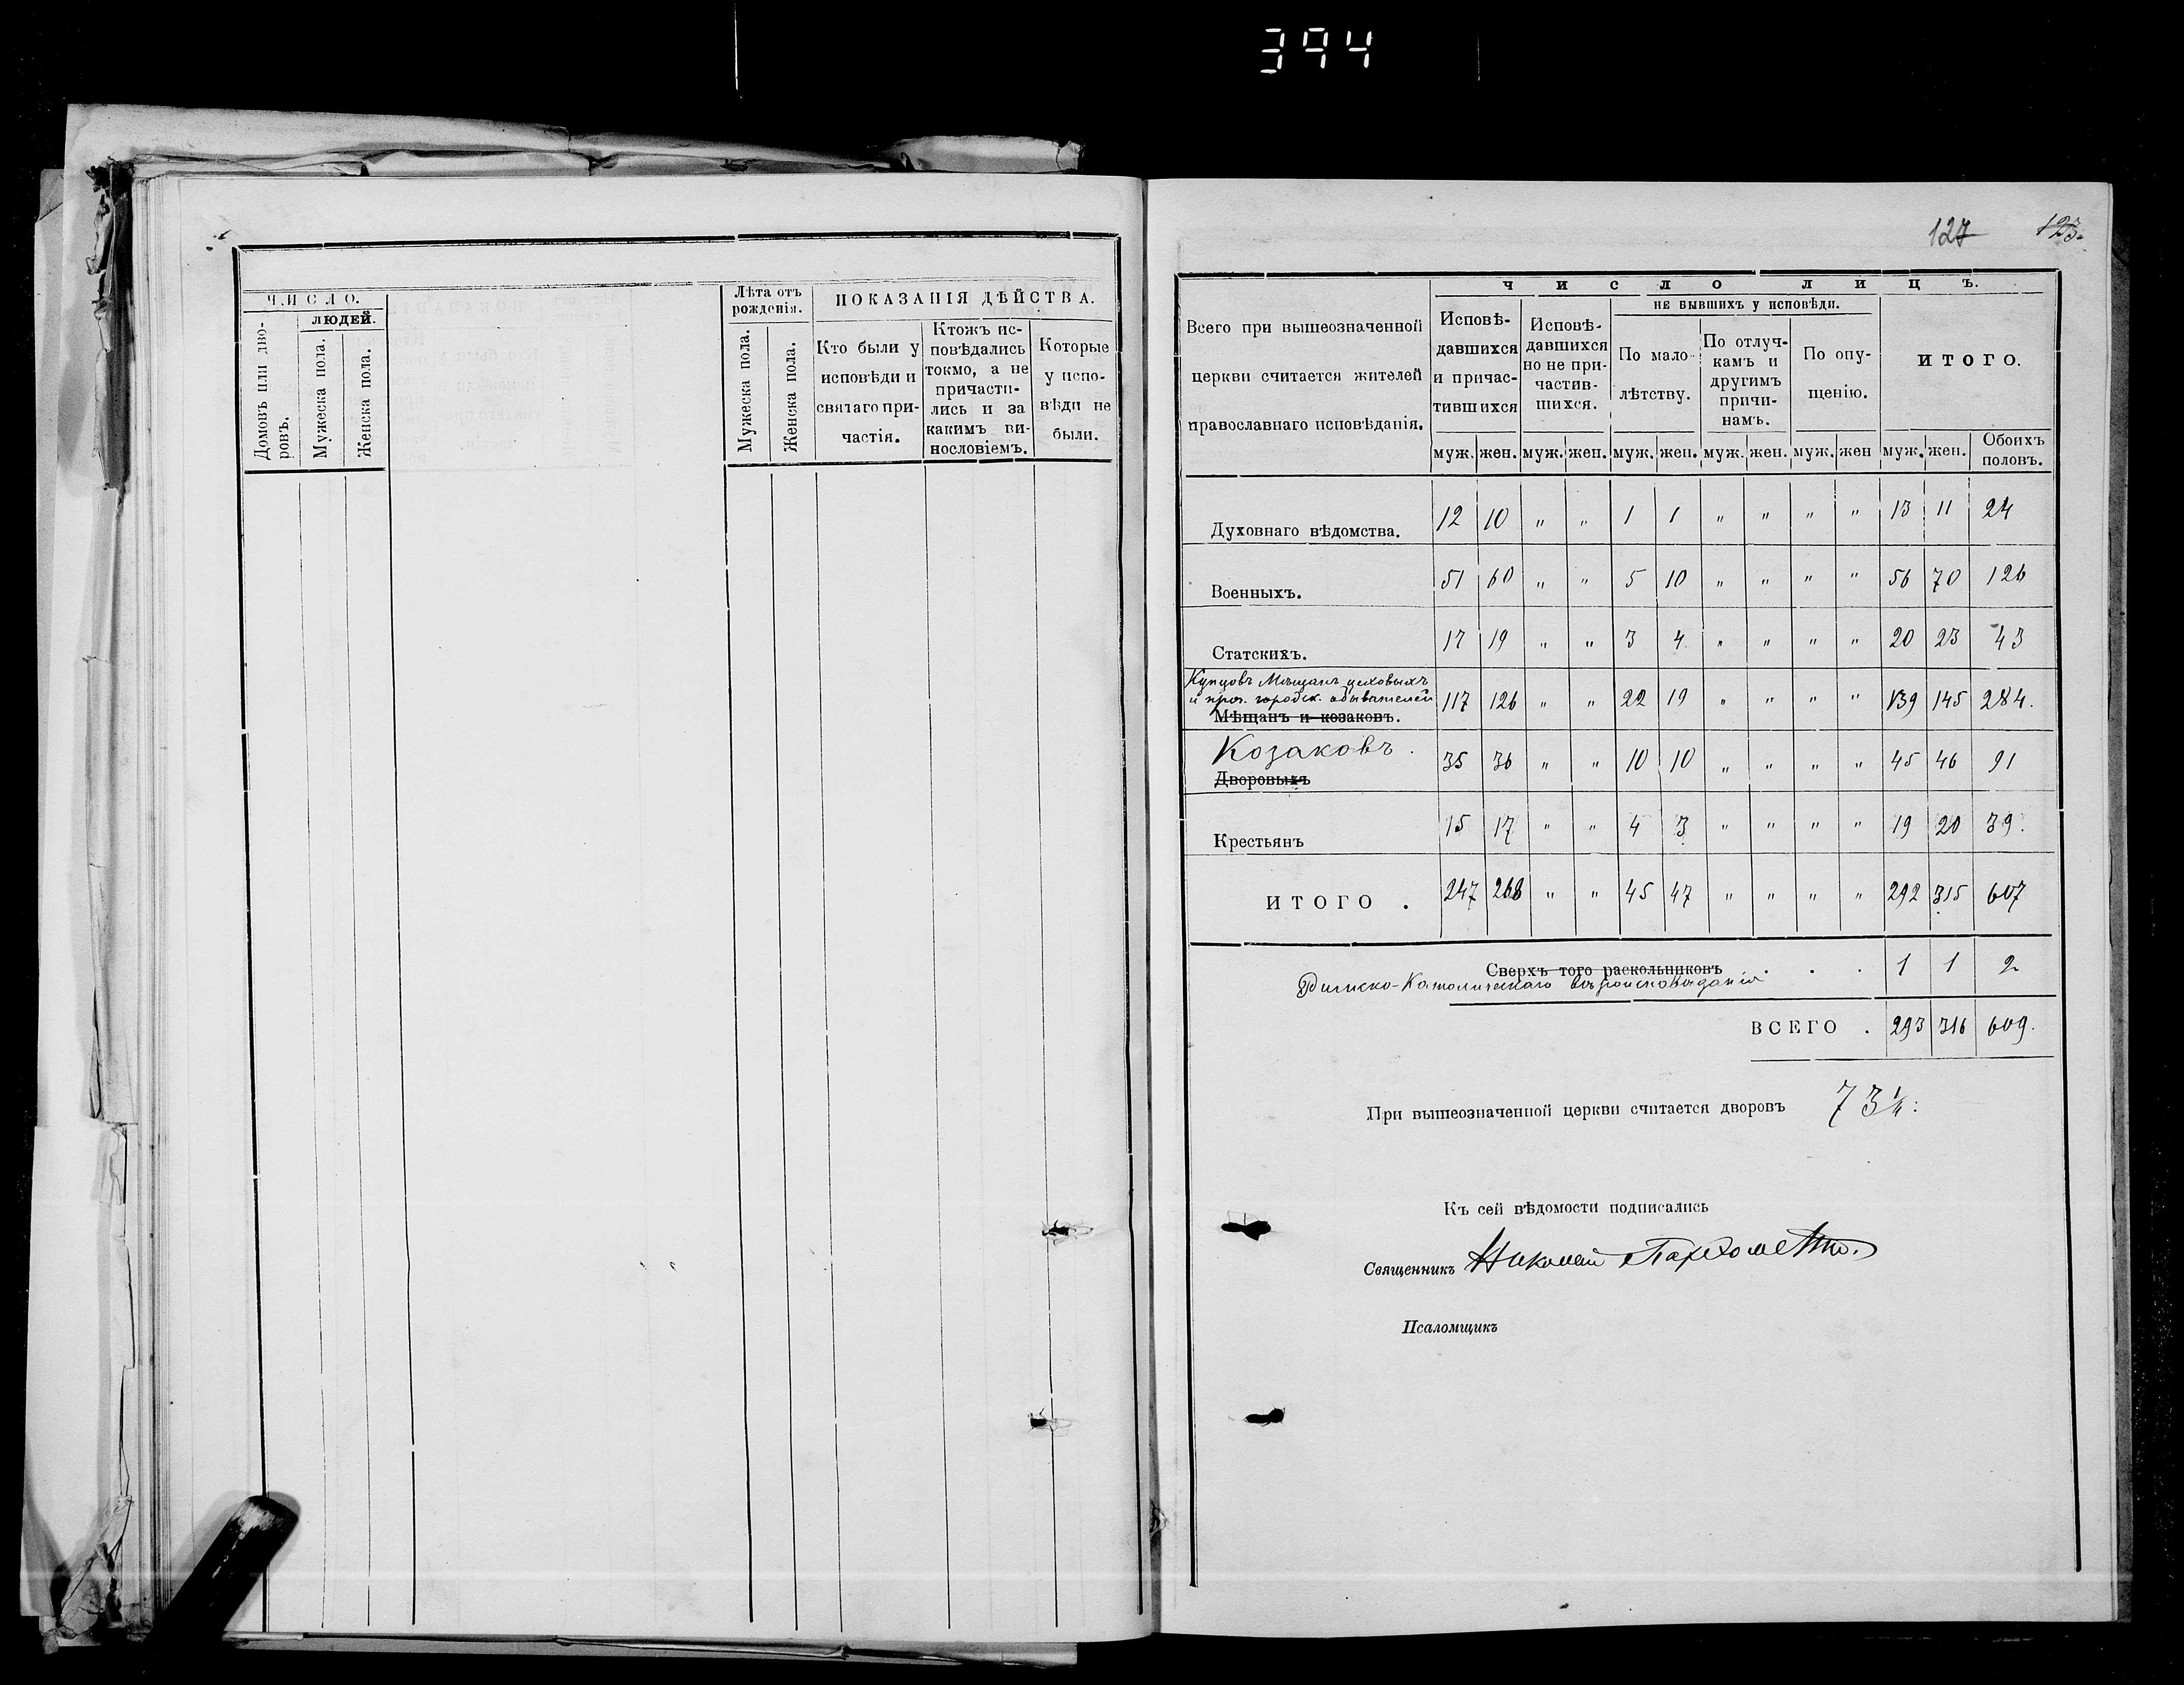 394
ЧИСЛО.
Домовъ или дво-
ровъ.
ЛЮДЕЙ.
Мужеска пола.
Женска пола.
Лѣта отъ
рожденія.
Мужеска пола.
Женска пола.
ПОКАЗАНІЯ ДѢЙСТВА.
Кто были у
исповѣди и
святаго при-
частія.
Ктожъ ис-
повѣдались
токмо, а не
причасти-
лись и за
какимъ ви-
нословіемъ.
Которые
у испо-
вѣди не
были.
127 123.
Всего при вышеозначенной
церкви считается жителей
православнаго исповѣданія.
ЧИСЛО ЛИЦЪ.
Исповѣ-
давшихся
и причас-
тившихся
Исповѣ-
давшихся
но не при-
частив-
шихся.
НЕ БЫВШИХЪ У ИСПОВѢДИ.
По мало-
лѣтству.
По отлуч-
камъ и
другимъ
причи-
намъ.
По опу-
щенію.
ИТОГО.
муж. жен. муж. жен. муж. жен. муж. жен. муж. жен муж. жен. Обоихъ
половъ.
Духовнаго вѣдомства. 12 10 " " 1 1 " " " " 13 11 24
Военныхъ. 51 60 " " 5 10 " " " " 56 70 126
Статскихъ. 17 19 " " 3 4 " " " " 20 23 43
Купцовъ Мѣщанъ цеховыхъ
и проч. городск. обывателей 117 126 " " 22 19 " " " " 139 145 284.
Мѣщанъ и козаковъ.
Козаковъ. 35 36 " " 10 10 " " " " 45 46 91
Дворовыхъ
Крестьянъ 15 17 " " 4 3 " " " " 19 20 39.
ИТОГО . 247 268 " " 45 47 " " " " 292 315 607
Сверхъ того раскольниковъ . . . 1 1 2
Римско-Католическаго вѣроисповѣданія
ВСЕГО . 293 316 609.
При вышеозначенной церкви считается дворовъ 73¼:
Къ сей вѣдомости подписались
Священникъ Николай Пархоменко.
Псаломщикъ